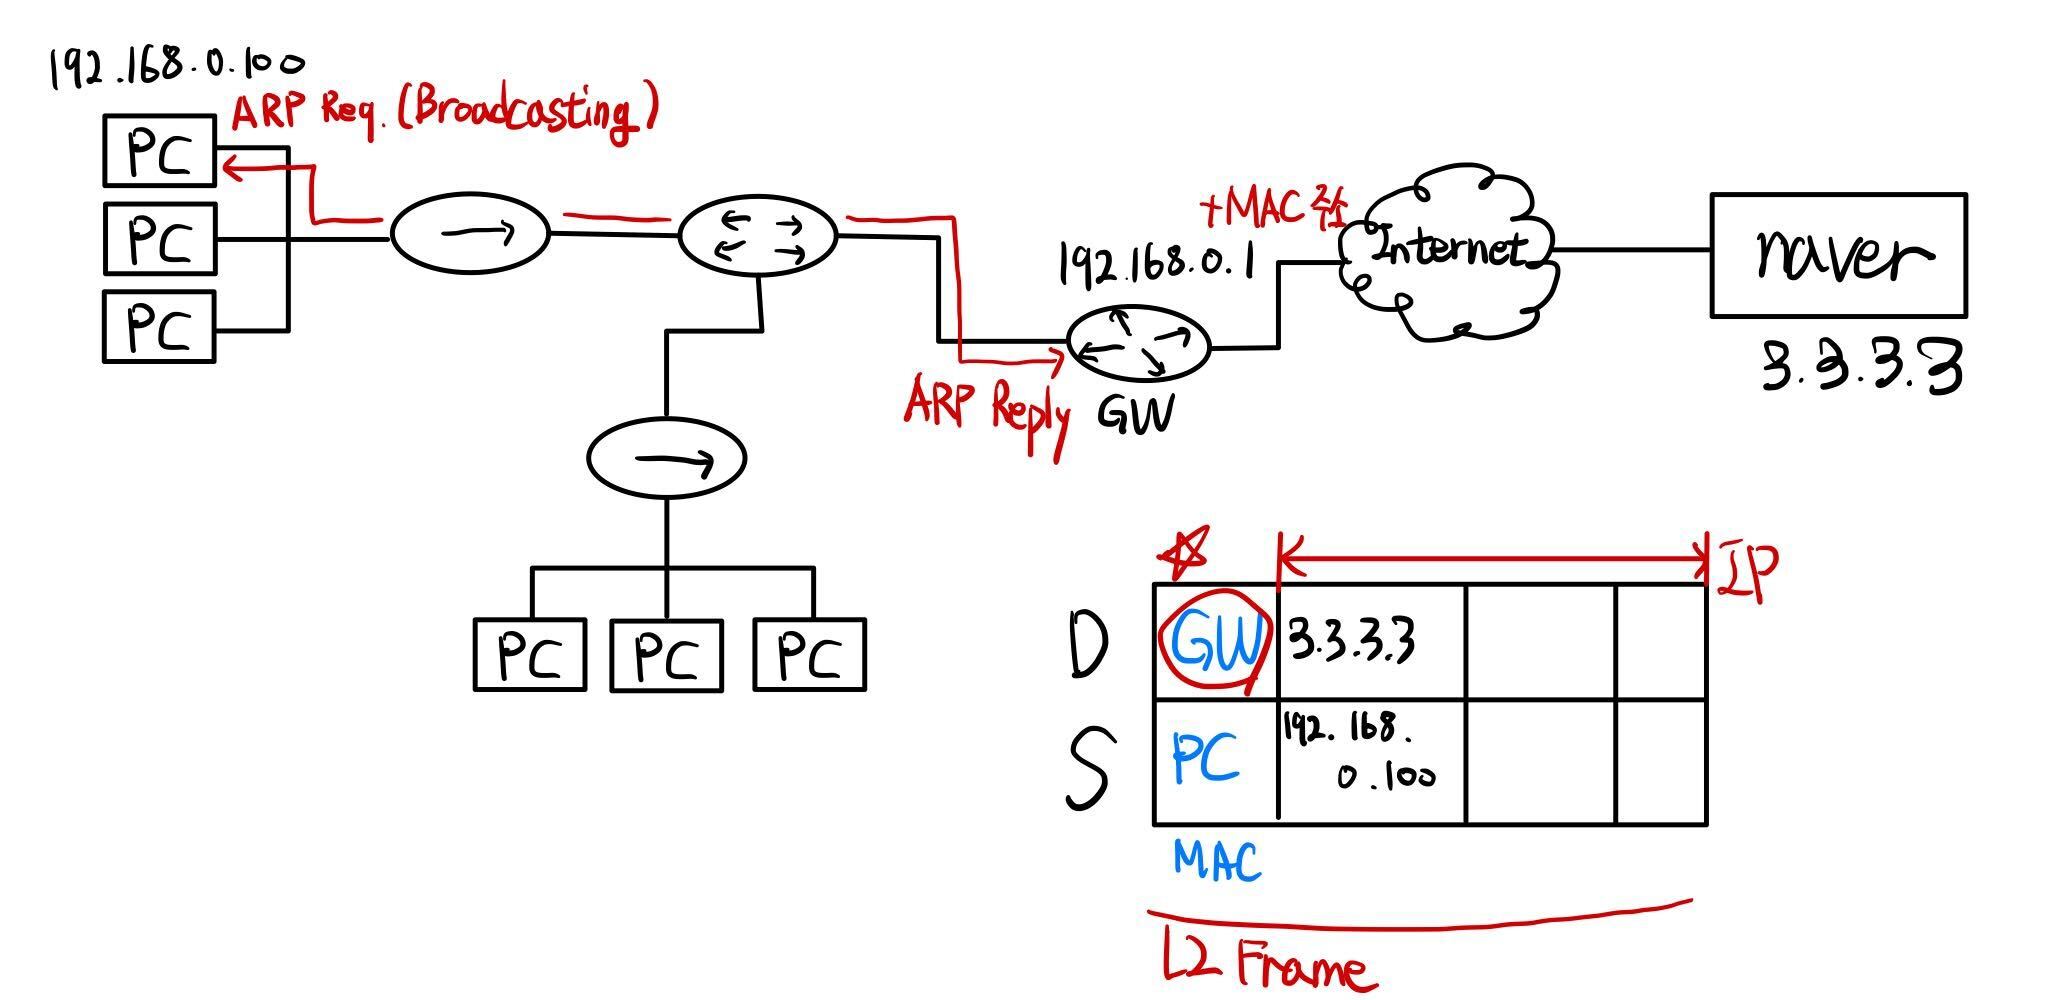 192.168.0.100
ARP Req. (Broadcasting)
PC
PC
PC
+MAC 주소
192.168.0.1
Internet
naver
3.3.3.3
ARP Reply
GW
PC
PC
PC
IP
D
GW
3.3.3.3
S
PC
192.168.
0.100
MAC
L2 Frame